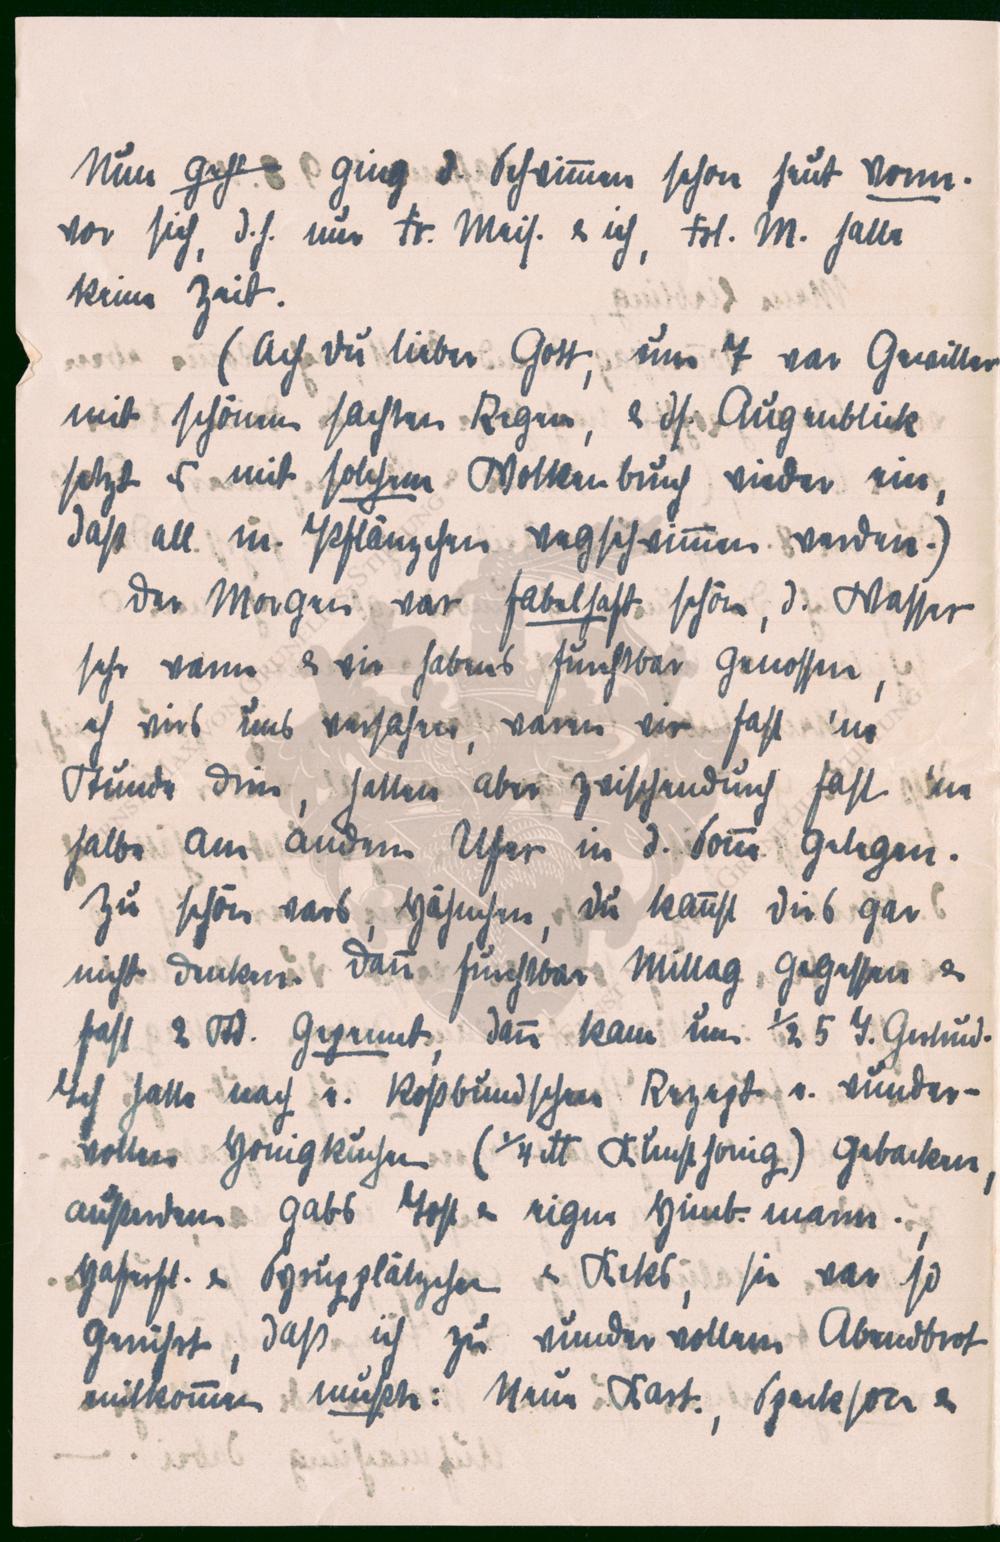 Nun geht ging d. Schwim̅en schon heut vorm.
vor sich, d.h. nur Fr. Meis. & ich, Frl. M. hatte
keine Zeit.
(Ach du lieber Gott, um 7 war Gewitter
mit schönem sachten Regen, & ds. Augenblick
setzt es mit solchem Wolkenbruch wieder ein,
daß all m. Pflänzchen wegschwim̅en werden.)
Der Morgen war fabelhaft schön, d. Wasser
sehr warm & wir habens furchtbar genossen,
eh wirs uns versahen, waren wir fast 'ne
Stunde drin, hatten aber zwischendurch fast 'ne
halbe am andern Ufer in d. Son̅e gelegen.
Zu schön wars, Hähnchen, du kan̅st dirs gar
nicht denken. Dan̅ furchtbar Mittag gegessen &
fast 2 Std. gepennt, dan̅ kam um ½ 5 J. Gertrud.
Ich hatte nach e. Roßbundschen Rezept e. wunder-
vollen Honigkuchen (¼ ℔ Kunsthonig) gebacken,
außerdem gabs Tost & eigne Himb. marm.,
Haferfl. & Syrupplätzchen & Keks, sie war so
gerührt, daß ich zu wundervollem Abendbrot
mitkom̅en mußte: Neue Kart., Specksoce &